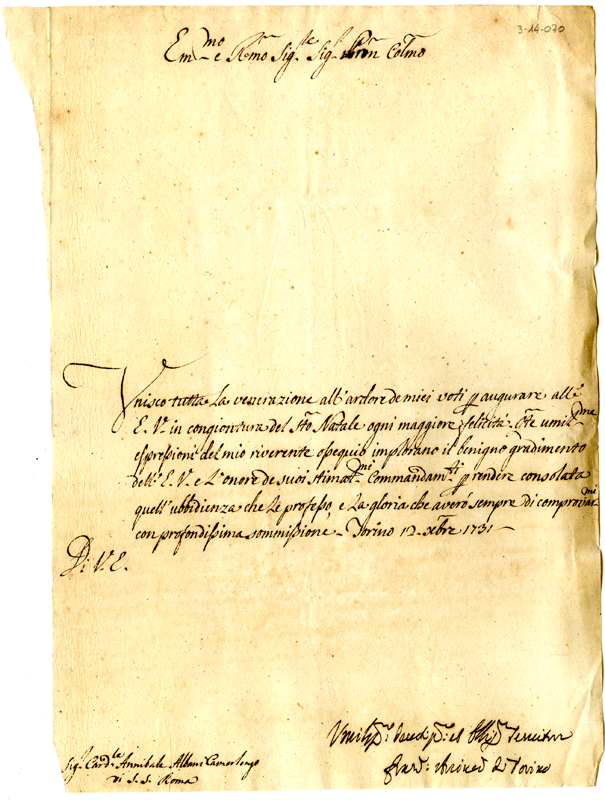 3-14-070
Em.mo e R.mo Sig.re Sig.r Pron Colmo
Unisco tutta la venerazione all'ardore de miei voti p augurare all'
E. V. in congiontura del Sto Natale ogni maggiore felicità. Qte umil.me
espressioni del mio riverente ossequio implorano il benigno gradimento
dell' E. V. e l'onore de suoi stimat.mi Commandam.ti p rendire consolata
quell'ubbidienza che le professo, e la gloria che averò sempre di comprovar.mi
con profondissima sommissione - Torino 12 xbre 1731 -
Di V. E.
Umil.mo
di Torino
Sig.r Card.le Annibale Albani Camerlengo
di S. S. Roma